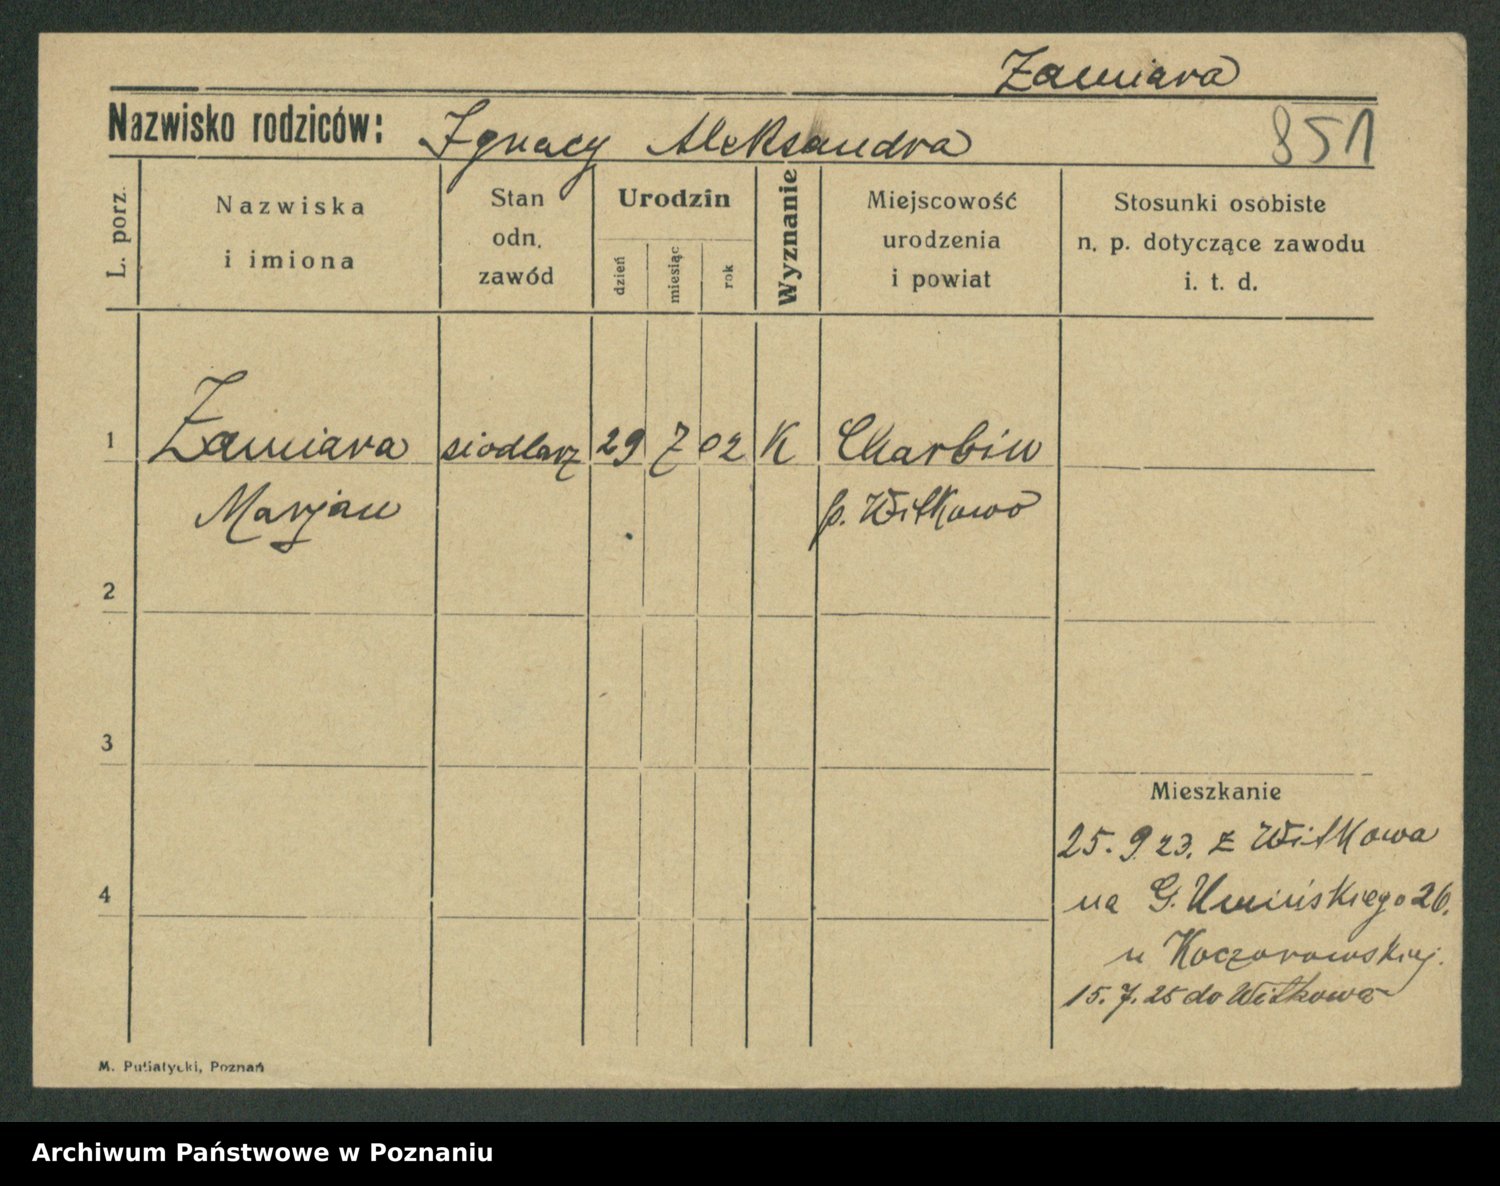 Zamiara
Nazwisko rodziców: Ignacy Aleksandra
851
L. porz.
Nazwiska
i imiona
Stan
odn.
zawód
Urodzin
dzień
miesiąc
rok
Wyznanie
Miejscowość
urodzenia
i powiat
Stosunki osobiste
n. p. dotyczące zawodu
i. t. d.
1 Zamiara siodlarz 29 7 02 K Charbin
Marjan p. Witkowo
2
3
Mieszkanie
25. 9 23. z Witkowa
4
na G. Umińskiego 26.
u Koczorowskiej.
15. 7. 25 do Witkowa
M. Putiatycki, Poznań
Archiwum Państwowe w Poznaniu